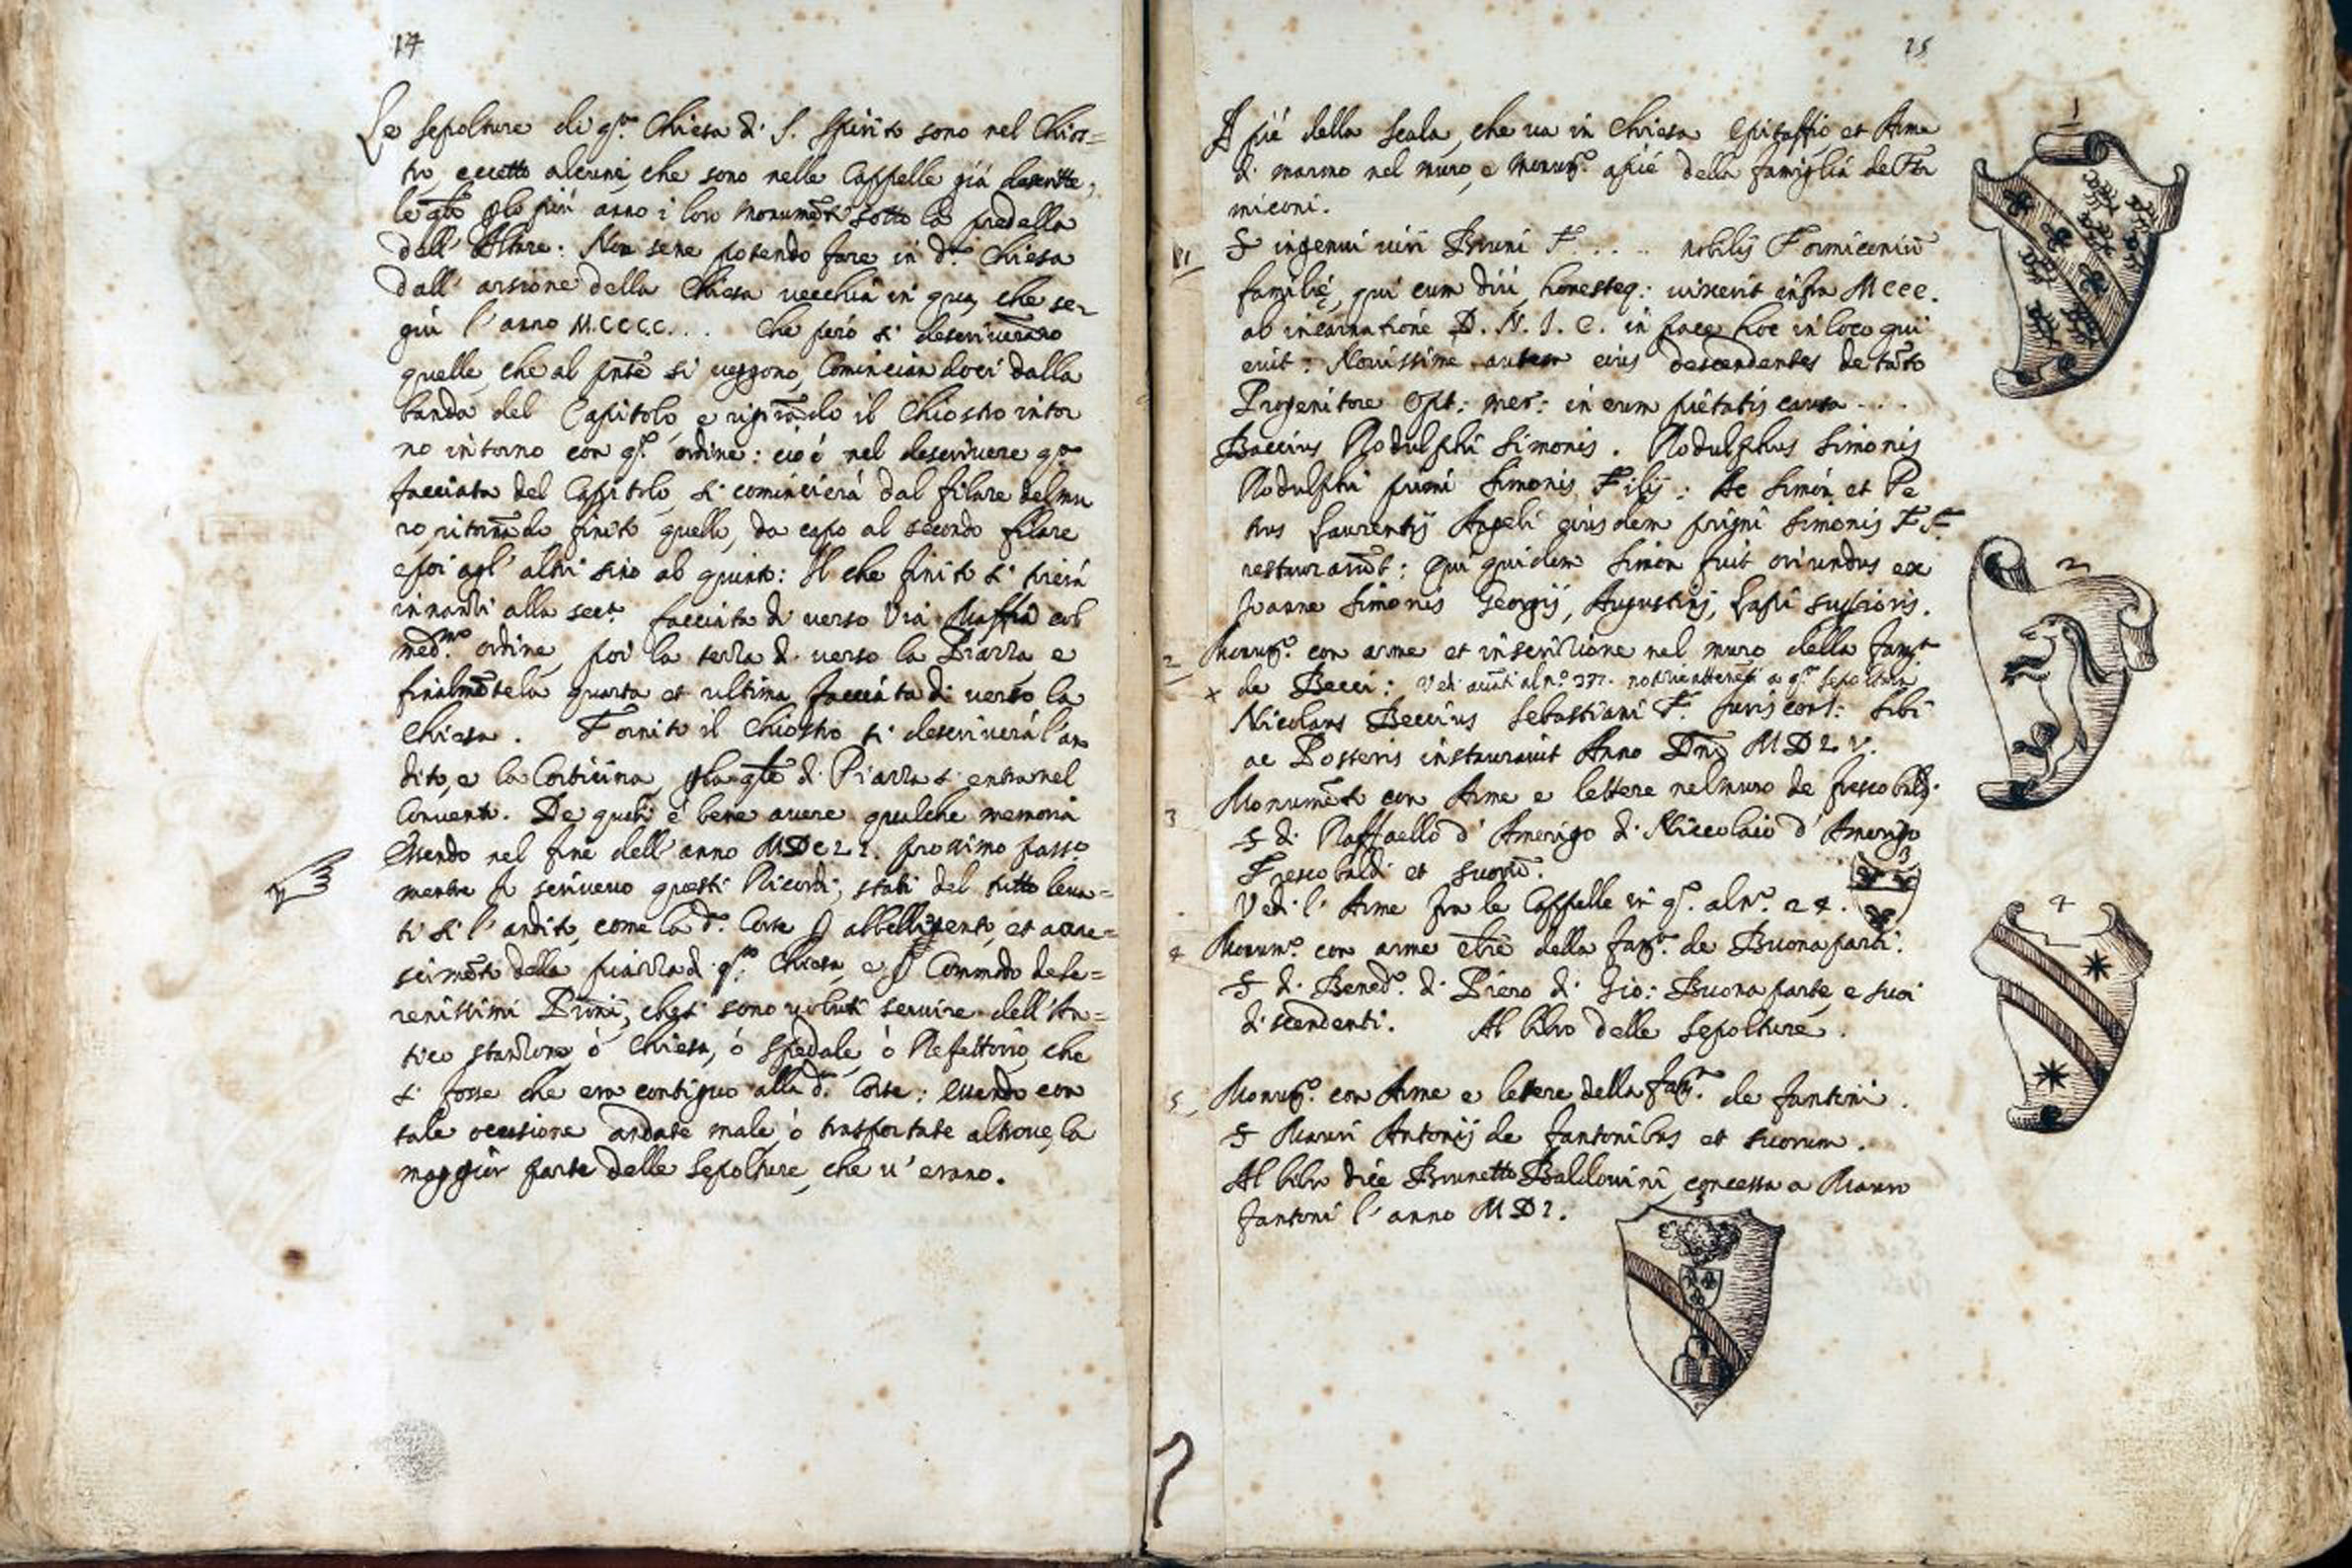 14
Le sepolture di q.ta Chiesa di S. Spirito sono nel Chios=
tro, eccetto alcune, che sono nelle Cappelle già descritte,
le q̃li plo più anno i loro monumẽti sotto la predella
dell' Altare: Non sene potendo fare in d.ta Chiesa
dall' arsione della Chiesa vecchia in qua, che se-
guì l'anno M.CCCC... Che però si descriverãno
quelle, che al pñte si veggono, Cominciandoci dalla
banda del Capitolo, e rigirãdo il Chiostro intor
no intorno con q.to ordine: cioè nel descrivere q.ta
facciata del Capitolo, si comincierà dal filare del mu
ro, ritornãdo finito quello, da capo al secondo filare
e poi agl' altri sino al quinto: Il che finito si
innanzi alla sec.ta facciata di verso Via Maffia col
med.mo ordine, poi la terza di verso la Piazza e
finalmẽte la quarta et ultima facciata di verso la
Chiesa. Fornito il Chiostro si descriverà l'an
dito, e la Corticina, p la q̃le di Piazza s' entra nel
Convento. De quali è bene avere qualche memoria
Essendo nel fine dell' anno MDCLI. prossimo pass.o
mentre si scrivevo questi Ricordi, stati del tutto leva=
ti sì l' andito, come la d.ta Corte p abbellimento, et accre=
scimẽto della piazza di q.ta Chiesa, e p Commodo de Se=
renissimi Prñi, che si sono voluti servire dell' An=
tico stanzone, ò Chiesa, ò Spedale, ò Refettorio, che
si fosse che era contiguo alla d.ta Corte; essendo con
tale occasione andate male, ò trasportate altrove, la
maggior parte delle Sepolture, che v' erano.
15
A piè della Scala, che va in Chiesa Epitaffio et Arme
di marmo nel muro, e Monum.to apiè della famiglia de For
miconi.
1 S ingenui viri Bruni F. . . . . nobilis Formiconiũ
familię, qui cum diu, honesteq: vixerit infra MCCC.
ab incarnatione D. N. J. C. in pace hoc in loco qui
evit: Novissime autem eius descendentes de tãto
Progenitore Opt: mer: in eum pietatis causa ....
Baccius Rodulphi Simonis. Rodulphus Simonis
Rodulphi primi Simonis Filij: Ac Simon et Pe
trus Laurentij Angeli eiusdem primi Simonis F.F.
restaurarũt: Qui quidem Simon fuit oriundus ex
Joanne Simonis Georgij, Augustini, Lapi
2 Monum.to con arme et inscrizione nel muro della fam.a
x de Becci: Vedi avãti al n.o 377. notizie attenẽti a q.ta Sepoltura
Nicolaus Beccius Sebastiani F. Juris cons: Sibi
ac Posteris instauravit Anno Dñi MDLV.
3 Monumẽto con Arme e lettere nel muro de frescobaldi.
S di Raffaello d' Amerigo di Niccolaio d' Amerigo
Frescobaldi et suorũ.
Vedi l' Arme fra le Cappelle in q.o al n.o 24.
4 Monum.o con arme della fam.a de Buonaparti.
S di Bened.o di Piero di Gio: Buonaparte, e suoi
discendenti. Al libro delle Sepolture.
5 Monum.o con Arme e lettere della fam.a de fantoni.
S Mauri Antonij de fantonibus et suorum.
Al libro dice Brunetto Baldovini, concessa a Mauro
fantoni l' anno MDI.
1
2
3
4
5